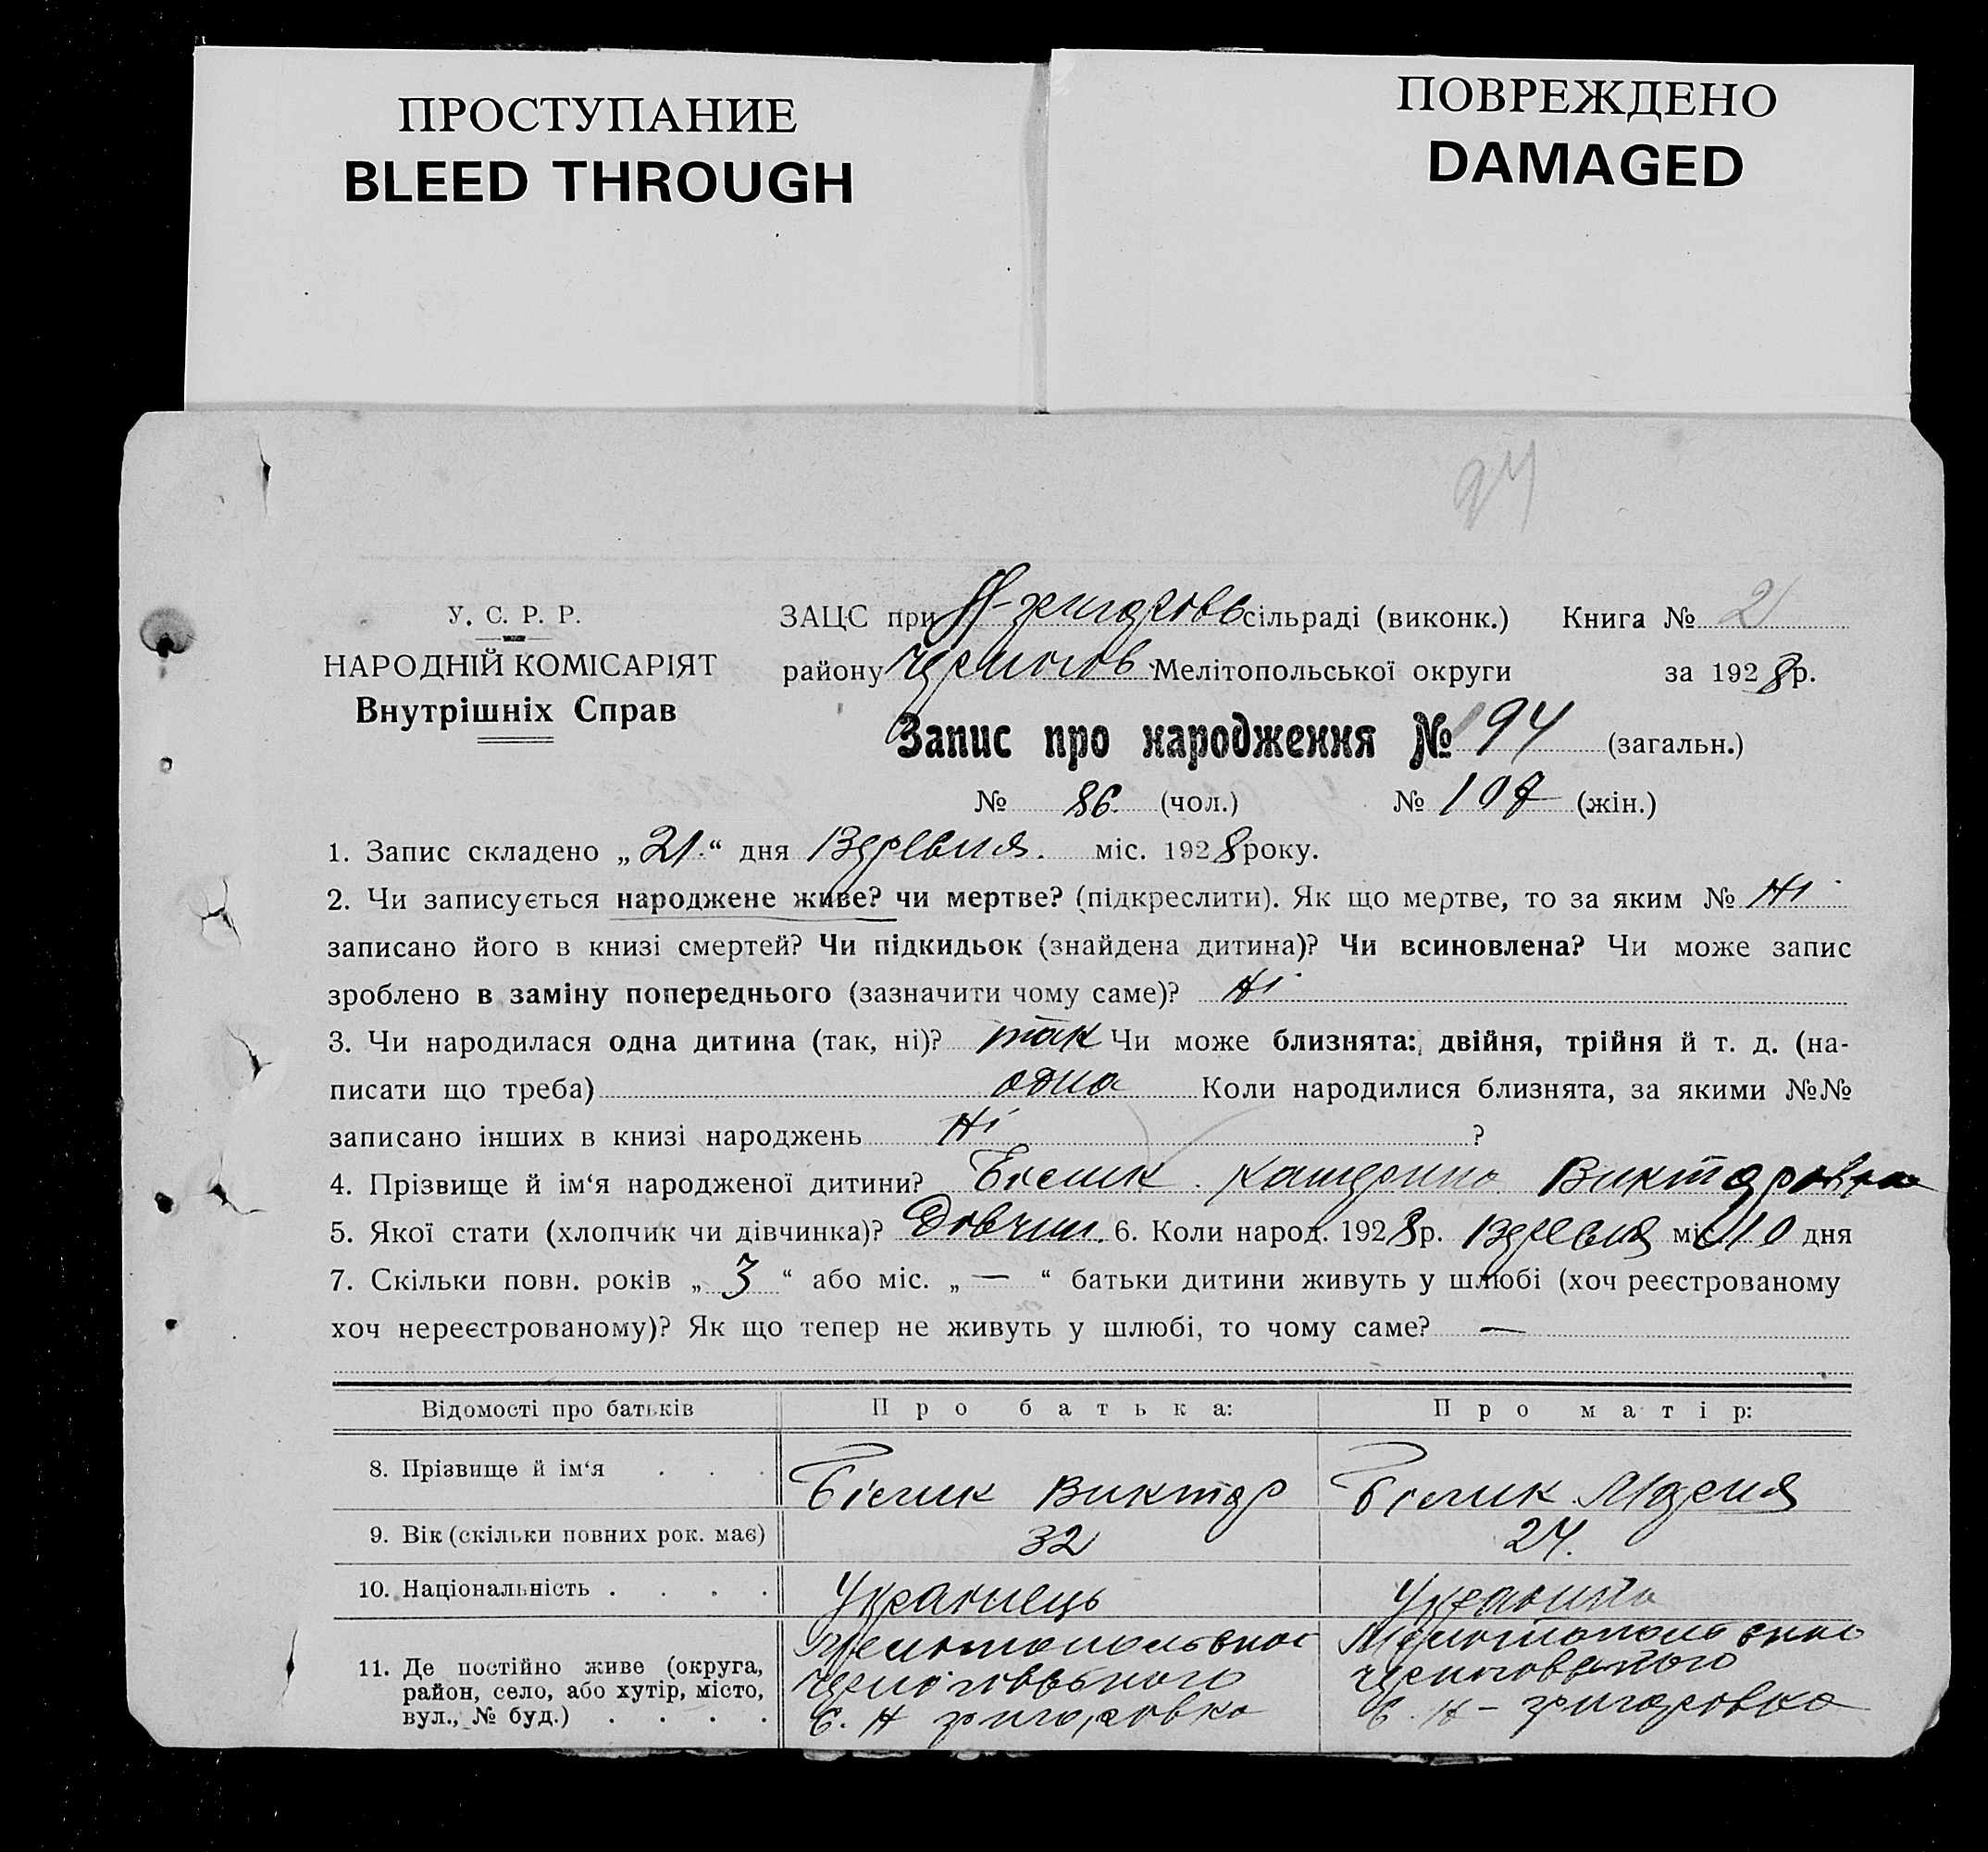 ПРОСТУПАНИЕ
BLEED THROUGH
ПОВРЕЖДЕНО
DAMAGED
94
У. С. Р. Р.
НАРОДНІЙ КОМІСАРІЯТ
Внутрішніх Справ
ЗАЦС при Н-григоровс сільраді (виконк.) Книга № 2
району Черниговс Мелітопольської округи за 1928 р.
Запис про народження № 194 (загальн.)
№ 86. (чол.) № 107 (жін.)
1. Запис складено „21.“ дня Вересня. міс. 1928 року.
2. Чи записується народжене живе? чи мертве? (підкреслити). Як що мертве, то за яким № Ні
записано його в книзі смертей? Чи підкидьок (знайдена дитина)? Чи всиновлена? Чи може запис
зроблено в заміну попереднього (зазначити чому саме)? Ні
3. Чи народилася одна дитина (так, ні)? так Чи може близнята: двійня, трійня й т. д. (на-
писати що треба) одна Коли народилися близнята, за якими №№
записано інших в книзі народжень Ні ?
4. Прізвище й ім‘я народженої дитини? Білик Катерина Викторовна
5. Якої стати (хлопчик чи дівчинка)? Довчин. 6. Коли народ. 1928 р. Вересня міс 10 дня
7. Скільки повн. років „ 3 “ або міс. „ — “ батьки дитини живуть у шлюбі (хоч реєстрованому
хоч нереєстрованому)? Як що тепер не живуть у шлюбі, то чому саме? —
Відомості про батьків Про батька: Про матір:
8. Прізвище й ім‘я . . . Білик Виктор Білик
9. Вік (скільки повних рок. має) 32 24.
10. Національність . . . . Українець Українка
11. Де постійно живе (округа,
район, село, або хутір, місто,
вул., № буд.) . . . .
Мелитопольской
Черниговського
С. Н григоровка
Мелитопольской
Черниговського
С. Н - григоровка